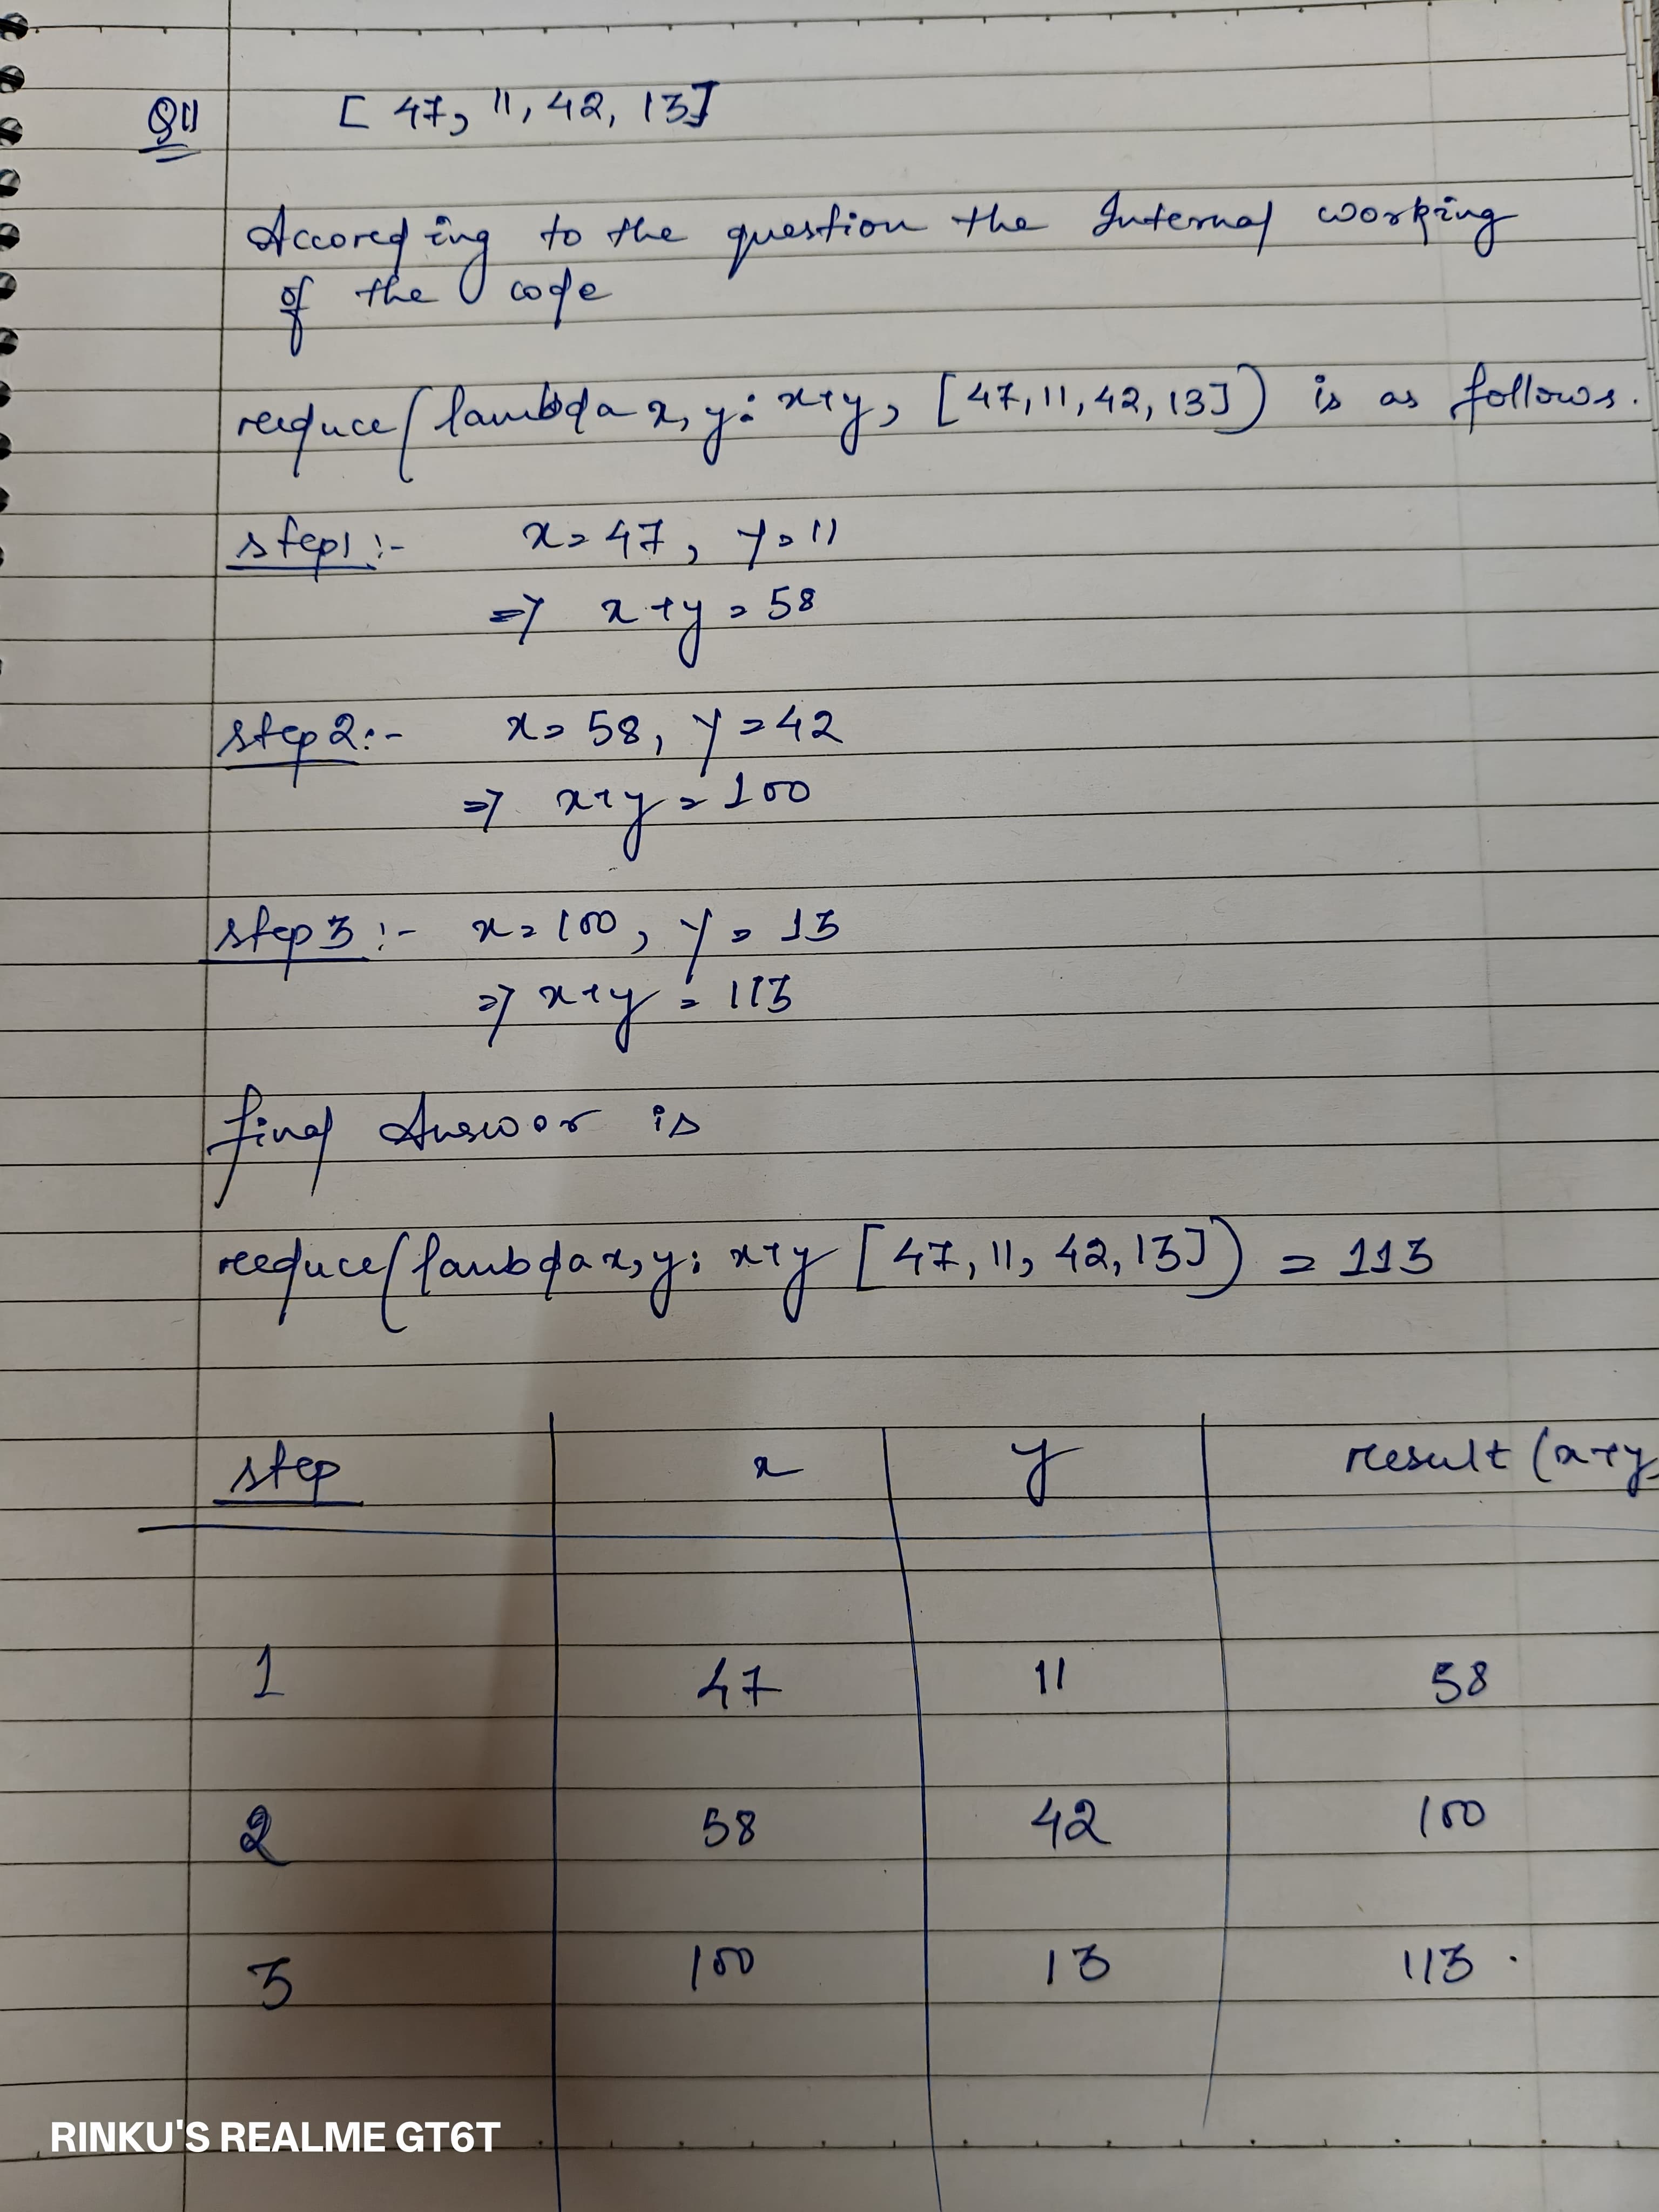 Q11 [47, 11, 42, 13]
According to the question the Internal working
of the code
reduce(lambda x, y: x+y, [47,11,42,13]) is as follows.
step1:- x=47, y=11
=> x+y=58
step2:- x=58, y=42
=> x+y=100
step3:- x=100, y=13
=> x+y=113
final Answer is
reduce(lambda x,y: x+y [47,11,42,13]) = 113
step x y result (x+y
1 47 11 58
2 58 42 100
3 100 13 113.
RINKU'S REALME GT6T